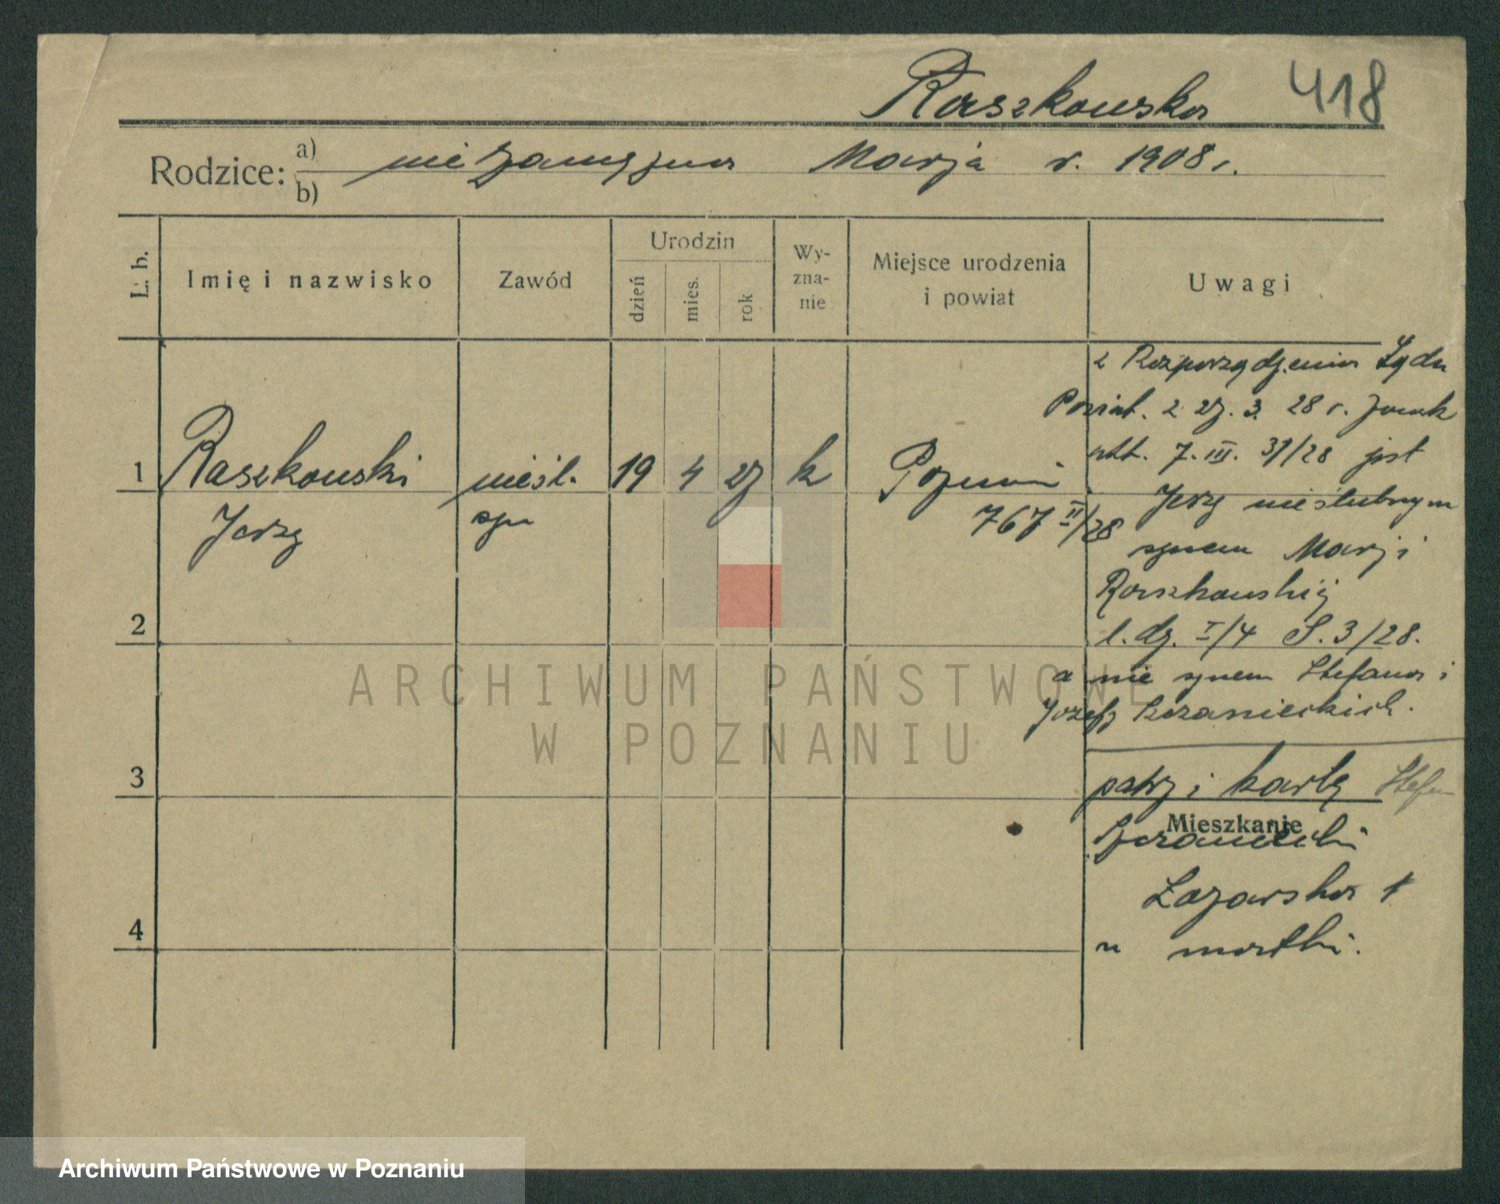 Raszkowska 418
Rodzice: a) niezamężna Marja r. 1908 r.
b)
L. b.
Imię i nazwisko
Zawód
Urodzin
dzień
mies.
rok
Wy-
zna-
nie
Miejsce urodzenia
i powiat
Uwagi
1 Raszkowski nieśl. 19 4 27 k Poznań
Jerzy syn 767 II/28
2
3
4
z Rozporządzenia Sądu
Powiat. z 27. 3. 28 r.
7. III. 37/28 jest
Jerzy nieślubnym
synem Marji
Raszkowskiej
l. dz. I/4 S. 3/28.
a nie synem Stefana i
Józefy
patrz i kartę Stefan
Mieszkanie
Łazarska 1
u matki.
ARCHIWUM PAŃSTWOWE
W POZNANIU
Archiwum Państwowe w Poznaniu